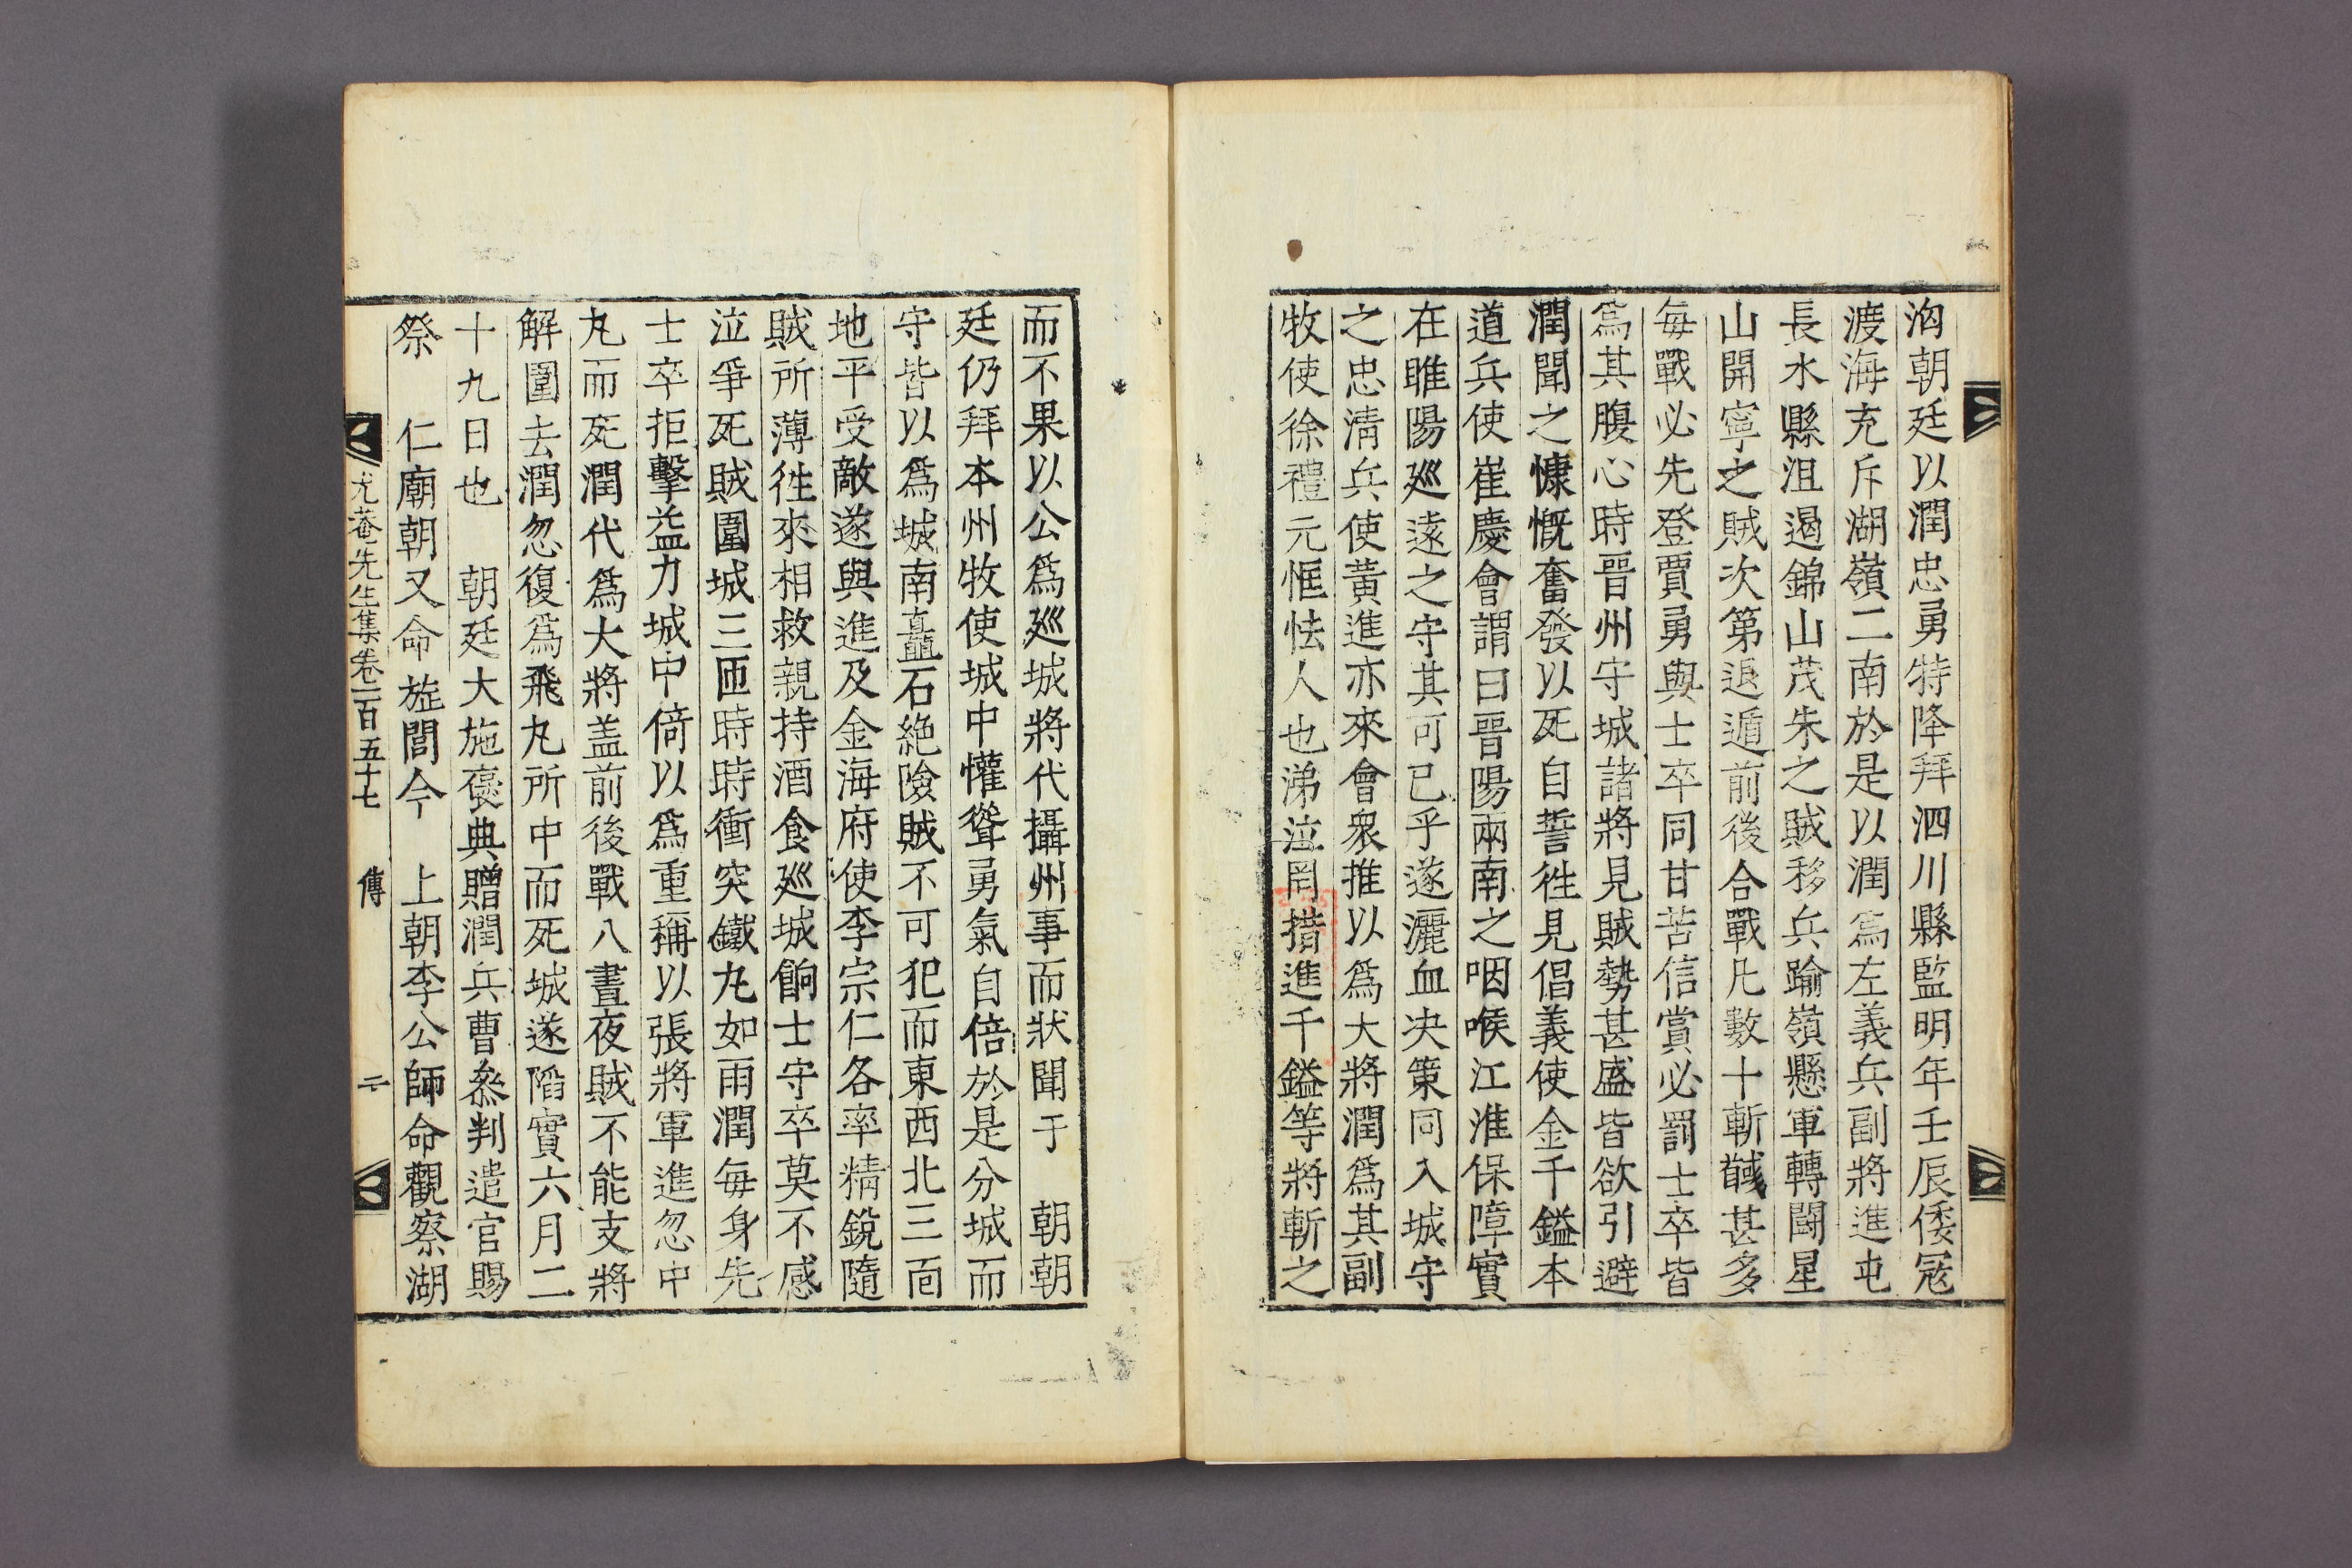 洶朝廷以潤忠勇特降拜泗川縣監明年壬辰倭冦
渡海充斥湖嶺二南於是以潤爲左義兵副將進屯
長水縣沮遏錦山茂朱之賊移兵踰嶺懸軍轉鬪星
山開寧之賊次第退遁前後合戰凡數十斬馘甚多
每戰必先登賈勇與士卒同甘苦信賞必罰士卒皆
爲其腹心時晉州守城諸將見賊勢甚盛皆欲引避
潤聞之慷慨奮發以死自誓徃見倡義使金千鎰本
道兵使崔慶會謂曰晉陽兩南之咽喉江淮保障實
在睢陽廵遠之守其可已乎遂灑血决策同入城守
之忠淸兵使黃進亦來會衆推以爲大將潤爲其副
牧使徐禮元恇怯人也涕泣罔措進千鎰等將斬之
而不果以公爲廵城將代攝州事而狀聞于 朝朝
廷仍拜本州牧使城中懽聳勇氣自倍於是分城而
守皆以爲城南矗石絶險賊不可犯而東西北三面
地平受敵遂與進及金海府使李宗仁各率精銳隨
賊所薄徃來相救親持酒食廵城餉士守卒莫不感
泣爭死賊圍城三匝時時衝突鐵丸如雨潤每身先
士卒拒擊益力城中倚以爲重稱以張將軍進忽中
丸而死潤代爲大將盖前後戰八晝夜賊不能支將
解圍去潤忽復爲飛丸所中而死城遂陷實六月二
十九日也 朝廷大施褒典贈潤兵曹叅判遣官賜
祭 仁廟朝又命㫌閭今 上朝李公師命觀察湖
尤菴先生集卷一百五十七 傳 二